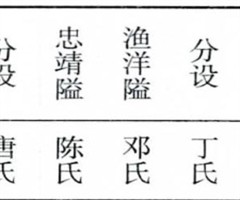 分设
忠靖隘
渔洋隘
分设
唐氏
陈氏
邓氏
丁氏